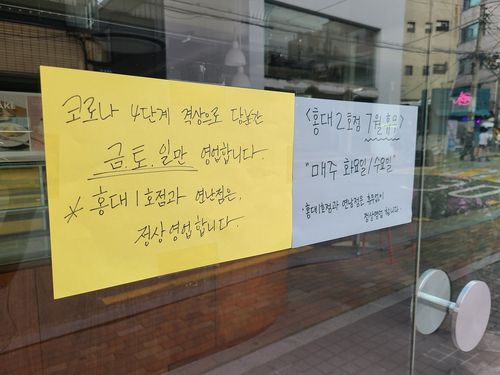 코로나 4단계 격상으로 당분간
금.토.일만 영업합니다.
* 홍대 1호점과 연남점은,
정상영업합니다.
<홍대 2호점 7월 휴무>
"매주 화요일/수요일"
·홍대1호점과 연남점은 휴무없이
정상영업 합니다.